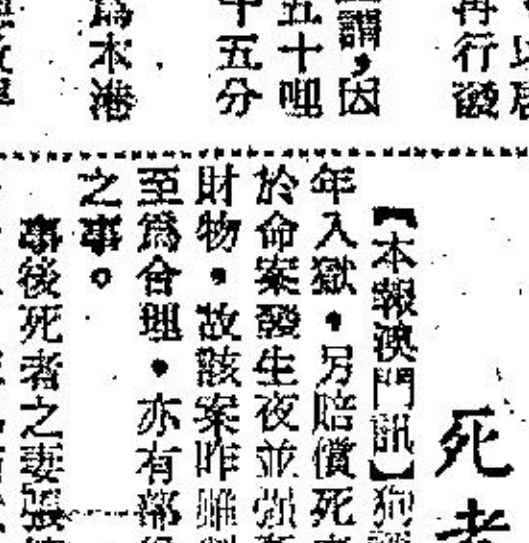 再行發
謂，因
五十哩
十五分
為本港
死者
【本報澳門訊】狗
年入獄，另賠償死
於命案發生夜並強
財物，故該案昨雖
至為合理，亦有部
之事。
事後死者之妻張